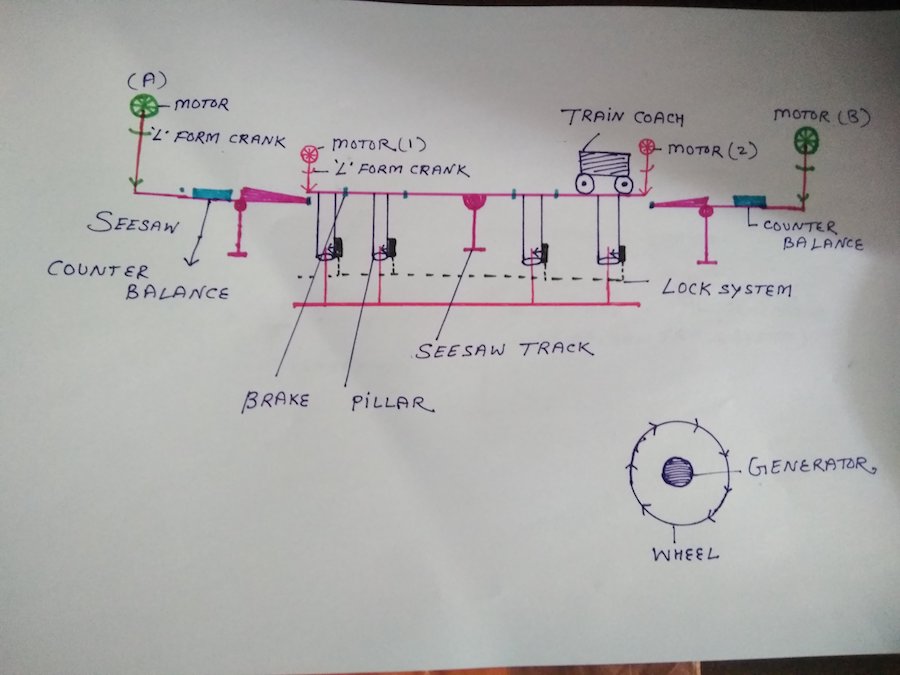 (A)
MOTOR
'L' FORM CRANK
MOTOR(1)
'L' FORM CRANK
TRAIN COACH
MOTOR(2)
MOTOR (B)
SEESAW
COUNTER
BALANCE
COUNTER
BALANCE
LOCK SYSTEM
SEESAW TRACK
BRAKE
PILLAR
GENERATOR
WHEEL